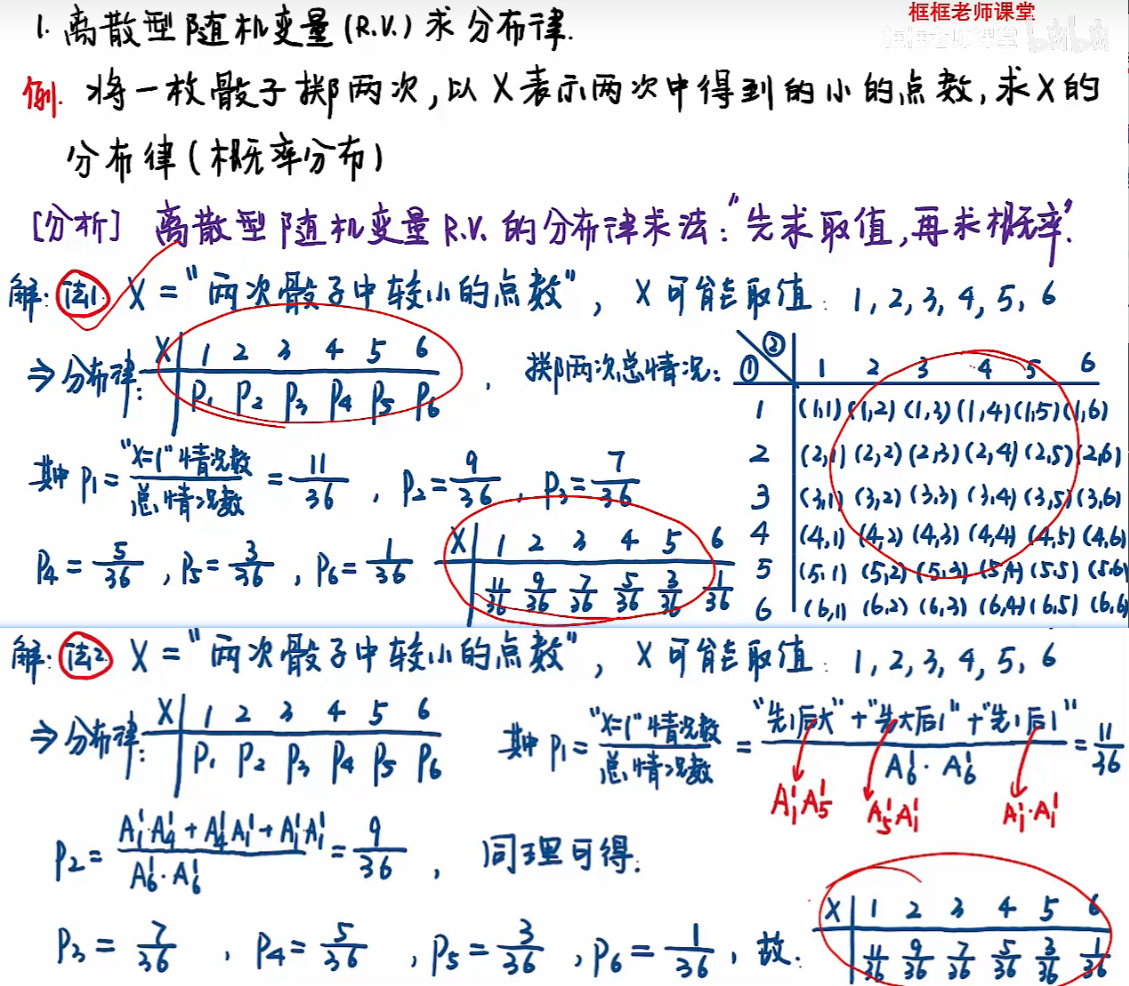 框框老师课堂
1. 离散型随机变量(R.V.)求分布律.
框框老师课堂 bilibili
例. 将一枚骰子掷两次,以X表示两次中得到的小的点数,求X的
分布律(概率分布)
[分析] 离散型随机变量R.V.的分布律求法:"先求取值,再求概率".
解: 法1. X="两次骰子中较小的点数", X可能取值: 1,2,3,4,5,6
⇒分布律: X 1 2 3 4 5 6
P₁ P₂ P₃ P₄ P₅ P₆
, 掷两次总情况: ① ② 1 2 3 4 5 6
1 (1,1) (1,2) (1,3) (1,4) (1,5) (1,6)
2 (2,1) (2,2) (2,3) (2,4) (2,5) (2,6)
3 (3,1) (3,2) (3,3) (3,4) (3,5) (3,6)
4 (4,1) (4,2) (4,3) (4,4) (4,5) (4,6)
5 (5,1) (5,2) (5,3) (5,4) (5,5) (5,6)
6 (6,1) (6,2) (6,3) (6,4) (6,5) (6,6)
其中 P₁ = "X=1"情况数/总情况数 = 11/36 , P₂ = 9/36 , P₃ = 7/36
P₄ = 5/36 , P₅ = 3/36 , P₆ = 1/36
X 1 2 3 4 5 6
11/36 9/36 7/36 5/36 3/36 1/36
解: 法2. X="两次骰子中较小的点数", X可能取值: 1,2,3,4,5,6
⇒分布律: X 1 2 3 4 5 6
P₁ P₂ P₃ P₄ P₅ P₆
其中 P₁ = "X=1"情况数/总情况数 = "先1后大"+"先大后1"+"先1后1"/A₆¹·A₆¹ = 11/36
A₁¹A₅¹ A₅¹A₁¹ A₁¹·A₁¹
P₂ = A₁¹·A₄¹+A₄¹A₁¹+A₁¹A₁¹/A₆¹·A₆¹ = 9/36 , 同理可得:
P₃ = 7/36 , P₄ = 5/36 , P₅ = 3/36 , P₆ = 1/36 , 故.
X 1 2 3 4 5 6
11/36 9/36 7/36 5/36 3/36 1/36